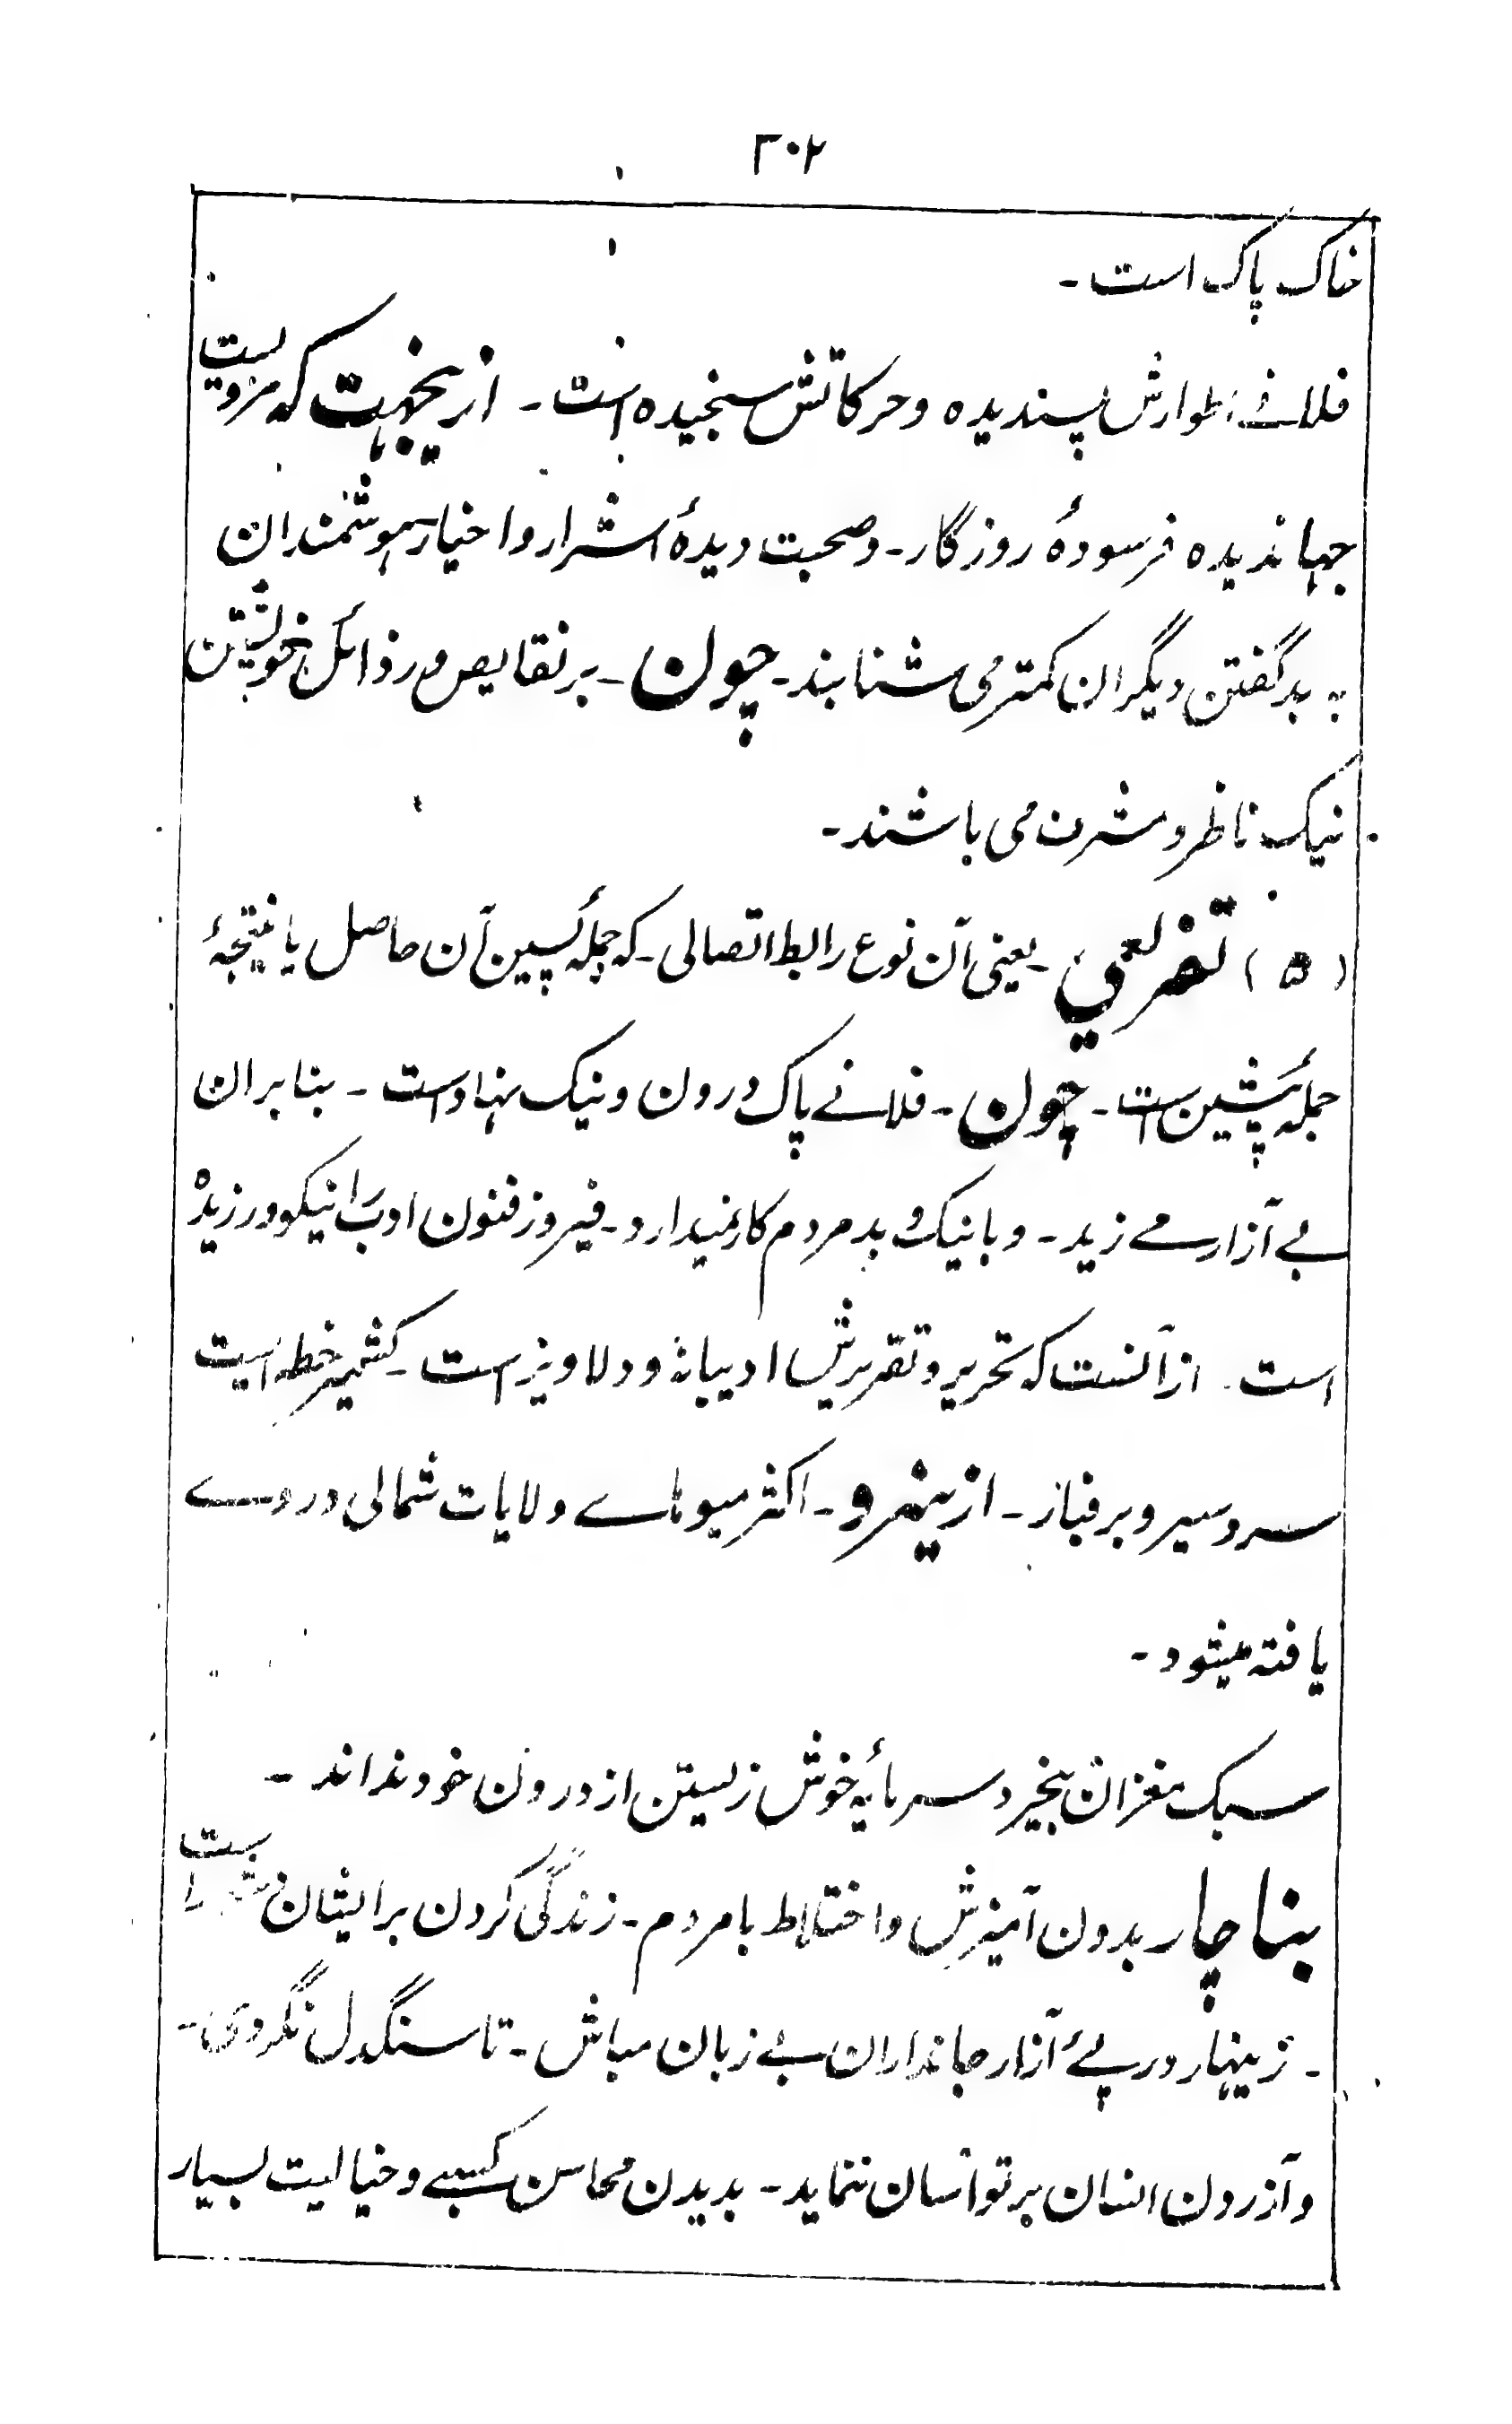 ۳۰۲
خاک پاک است ۔
فلانے اطوارش پسندیدہ وحرکاتش سنجیدہ است ۔ ازیںجہت کہ مردیست
جہاندیدہ فرسودۂ روزگار ۔ وصحبت دیدۂ اشرار واخیار ہوشمندان
بہ بدگفتن دیگران کمتر می شتابند ۔ چون ۔ بر نقایص ورذائل خویشتن
نیک ناظر ومشرف می باشند ۔
(۵) تفریعی ۔ یعنی آن نوع رابط اتصالی ۔ کہ جملۂ پسین آن حاصل یا نتیجۂ
جملۂ پیشین ست ۔ چون ۔ فلانے پاک درون ونیک نہاد است ۔ بنابران
بے آزار مے زید ۔ وبانیک و بد مردم کار نمیدارد ۔ فیروز فنون ادب را نیکو ورزیدہ
است ۔ ازآنست کہ تحریر وتقریرش ادیبانہ ودلاویز است ۔ کشمیر خطہ ایست
سردسیر وبرفبار ۔ ازینرو ۔ اکثر میوہاے ولایات شمالی دروے
یافتہ میشود ۔
سبک مغزان بیخرد سرمایۂ خوش زیستن از درون خود ندارند ۔
بناچار بدون آمیزش واختلاط بامردم ۔ زندگی کردن برایشان دشوار است
۔ زینہار درپئے آزار جانداران بے زبان مباش ۔ تا سنگدل نگردی ۔
وآزردن انسان بر تو آسان ننماید ۔ بدیدن محاسن کسبے وخیالیت بسیار